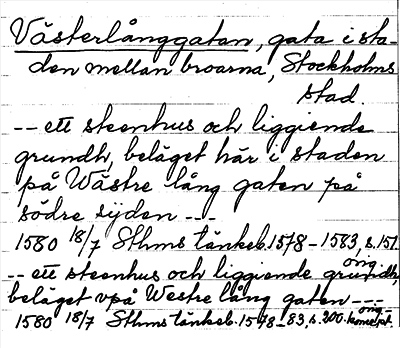 Västerlånggatan, gata i sta-
den mellan broarna, Stockholms
stad.
-- ett steenhus och liggiende
grundh, beläget här i staden
på Wästre lång gaten på
södre sijden ---
1580 18/7 Sthms tänkeb. 1578-1583, s. 151.
-- ett steenhus och liggiende grundh,
orig.
beläget vpå Westre lång gaten ---
1580 18/7 Sthms tänkeb. 1578-83, s. 200. orig. koncept.